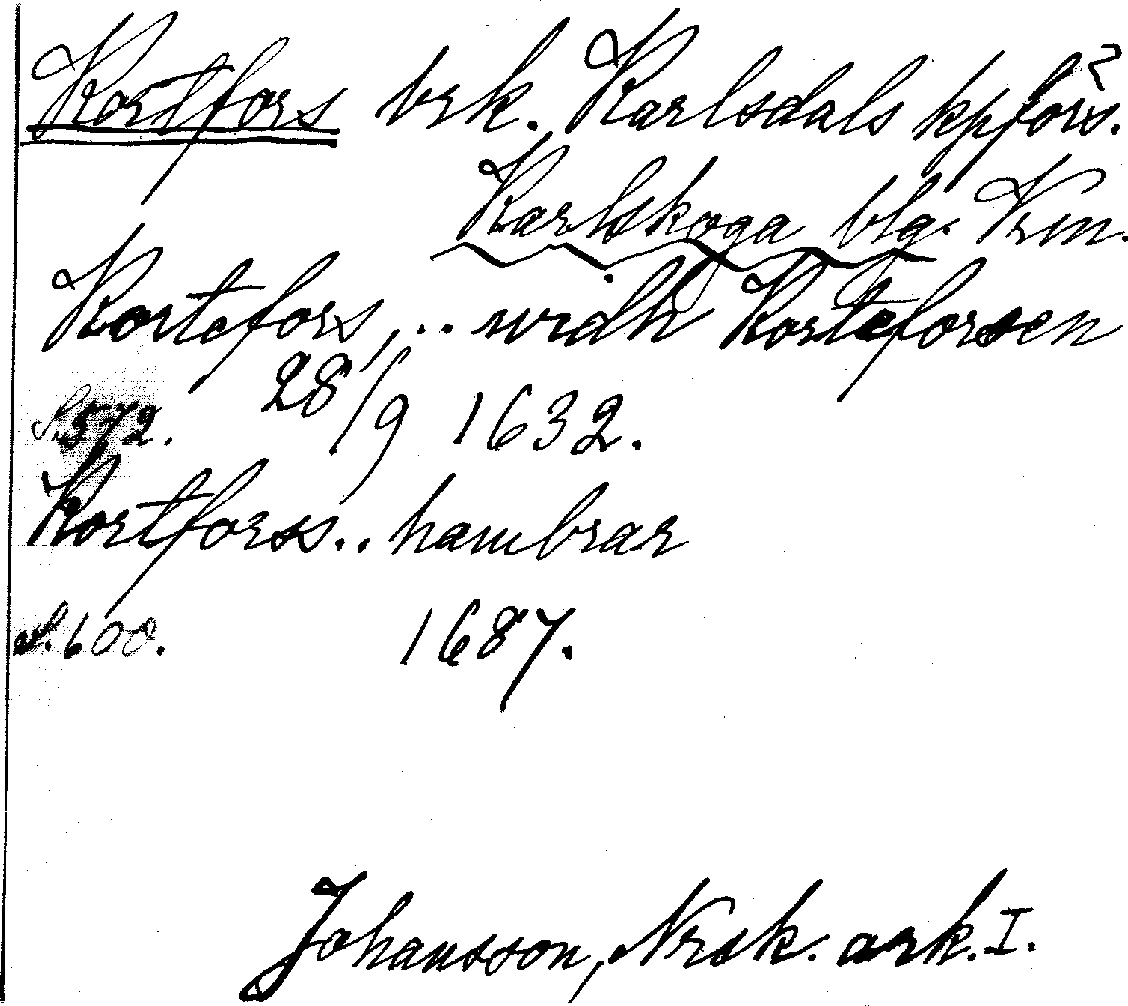 Kortfors brk. Karlsdals kpförs. ?
Karlskoga blg. Vrm.
Kortefors, .. widh Korteforsen
S. 572. 28/9 1632.
Kortforss .. hambrar
S. 600. 1687.
Johansson, Nrsk. ark. I.